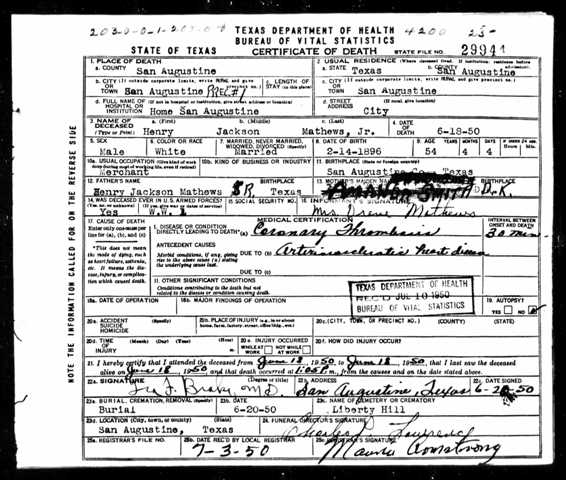 TEXAS DEPARTMENT OF HEALTH
BUREAU OF VITAL STATISTICS
4200 25-
STATE OF TEXAS CERTIFICATE OF DEATH STATE FILE NO. 29941
1. PLACE OF DEATH
a. COUNTY San Augustine
2. USUAL RESIDENCE (Where deceased lived. If institution: residence before admission)
a. STATE Texas b. COUNTY San Augustine
b. CITY (If outside corporate limits, write RURAL and give precinct no.) OR TOWN San Augustine PREC#1
c. LENGTH OF STAY (in this place)
c. CITY (If outside corporate limits, write RURAL and give precinct no.) OR TOWN San Augustine
d. FULL NAME OF (If not in hospital or institution, give street address or location) HOSPITAL OR INSTITUTION Home San Augustine
d. STREET ADDRESS (If rural, give location) City
3. NAME OF DECEASED (Type or Print) a. (First) Henry b. (Middle) Jackson c. (Last) Mathews, Jr.
4. DATE OF DEATH 6-18-50
5. SEX Male
6. COLOR OR RACE White
7. MARRIED, NEVER MARRIED, WIDOWED, DIVORCED (Specify) Married
8. DATE OF BIRTH 2-14-1896
9. AGE YEARS 54 MONTHS 4 DAYS 4
10a. USUAL OCCUPATION (Give kind of work done during most of working life, even if retired) Merchant
10b. KIND OF BUSINESS OR INDUSTRY
11. BIRTHPLACE (State or foreign country) San Augustine Co., Texas
12. FATHER'S NAME BIRTHPLACE
Henry Jackson Mathews SR. Texas
13. MOTHER'S MAIDEN NAME BIRTHPLACE
SMITH D.K.
14. WAS DECEASED EVER IN U.S. ARMED FORCES? (Yes, no, or unknown) (If yes, give war or dates of service)
Yes W.W. 1
15. SOCIAL SECURITY NO.
16. INFORMANT'S SIGNATURE
Mrs. Irene Mathews
17. CAUSE OF DEATH
Enter only one cause per line for (a), (b), and (c)
MEDICAL CERTIFICATION
INTERVAL BETWEEN ONSET AND DEATH
I. DISEASE OR CONDITION DIRECTLY LEADING TO DEATH* (a) Coronary Thrombosis 30 min.
*This does not mean the mode of dying, such as heart failure, asthenia, etc. It means the disease, injury, or complication which caused death.
ANTECEDENT CAUSES
Morbid conditions, if any, giving rise to the above cause (a) stating the underlying cause last.
DUE TO (b) Arteriosclerotic heart disease
DUE TO (c)
II. OTHER SIGNIFICANT CONDITIONS
Conditions contributing to the death but not related to the disease or condition causing death.
TEXAS DEPARTMENT OF HEALTH
REC'D JUL 10 1950
BUREAU OF VITAL STATISTICS
18a. DATE OF OPERATION
18b. MAJOR FINDINGS OF OPERATION
19. AUTOPSY? YES NO
20a. ACCIDENT SUICIDE HOMICIDE (Specify)
20b. PLACE OF INJURY (e.g., in or about home, farm, factory, street, office bldg., etc.)
20c. (CITY, TOWN, OR PRECINCT NO.) (COUNTY) (STATE)
20d. TIME OF INJURY (Month) (Day) (Year) (Hour)
20e. INJURY OCCURRED WHILE AT WORK NOT WHILE AT WORK
20f. HOW DID INJURY OCCUR?
21. I hereby certify that I attended the deceased from June 18, 1950, to June 18, 1950, that I last saw the deceased
alive on June 18, 1950, and that death occurred at m., from the causes and on the date stated above.
22a. SIGNATURE (Degree or title) M.D.
22b. ADDRESS San Augustine, Texas
22c. DATE SIGNED 6-20-50
23a. BURIAL, CREMATION, REMOVAL (Specify) Burial
23b. DATE 6-20-50
23c. NAME OF CEMETERY OR CREMATORY Liberty Hill
23d. LOCATION (City, town, or county) (State) San Augustine, Texas
24. FUNERAL DIRECTOR'S SIGNATURE
25a. REGISTRAR'S FILE NO.
25b. DATE REC'D BY LOCAL REGISTRAR 7-3-50
25c. REGISTRAR'S SIGNATURE Armstrong
NOTE THE INFORMATION CALLED FOR ON THE REVERSE SIDE